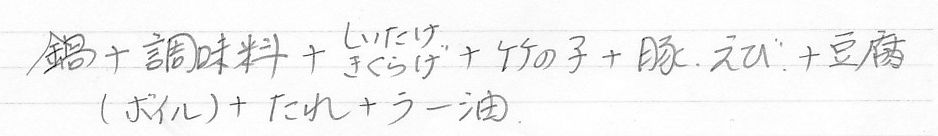 鍋+調味料+しいたけ きくらげ+竹の子+豚、えび、+豆腐
(ボイル)+たれ+ラー油